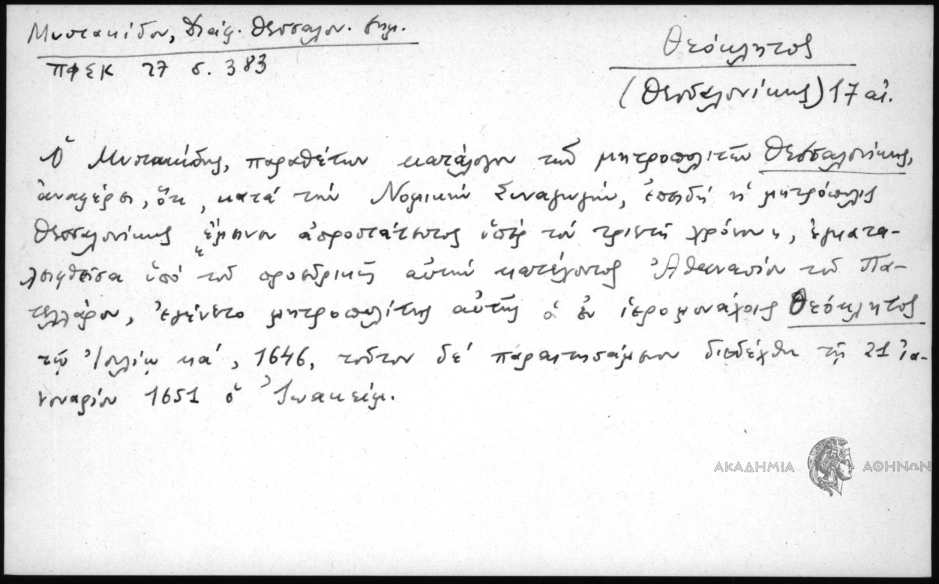 Μυστακίδου, Διάφ. Θεσσαλον.
ΠΦΣΚ 27 σ. 383
Θεόκλητος
(Θεσσαλονίκης) 17 αἰ.
Ὁ Μυστακίδης, παραθέτων κατάλογον τῶν μητροπολιτῶν Θεσσαλονίκης,
ἀναφέρει, ὅτι, κατὰ τὴν Νομικὴν Συναγωγήν, ἐπειδὴ ἡ μητρόπολις
Θεσσαλονίκης „ἔμεινεν ἀπροστάτευτος ὑπὲρ τὸν τριετῆ χρόνον", ἐγκατα-
λειφθεῖσα ὑπὸ τοῦ προεδρικῶς αὐτὴν κατέχοντος Ἀθανασίου τοῦ Πα-
τελλάρου, ἐγένετο μητροπολίτης αὐτῆς ὁ ἐν ἱερομονάχοις Θεόκλητος
τῷ Ἰουλίῳ κα', 1646, τοῦτον δὲ παραιτησάμενον διεδέχθη τῇ 21 Ἰα-
νουαρίου 1651 ὁ Ἰωακείμ.
ΑΚΑΔΗΜΙΑ ΑΘΗΝΩΝ